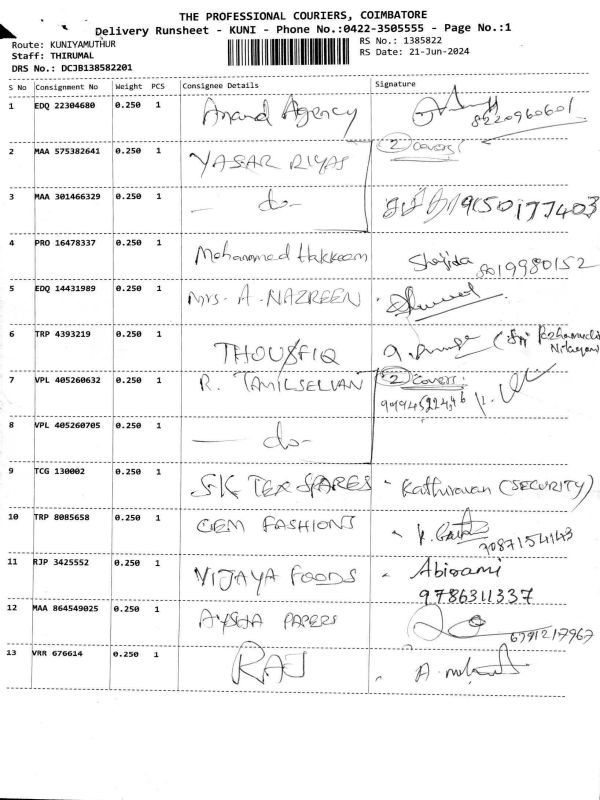 THE PROFESSIONAL COURIERS, COIMBATORE
Delivery Runsheet - KUNI - Phone No.:0422-3505555 - Page No.:1
Route: KUNIYAMUTHUR
RS No.: 1385822
Staff: THIRUMAL
RS Date: 21-Jun-2024
DRS No.: DCJB138582201
S No Consignment No Weight PCS Consignee Details Signature
1 EDQ 22304680 0.250 1 Anand Agency 8220960601
2 MAA 575382641 0.250 1 YASAR RIYAS 2 Covers
3 MAA 301466329 0.250 1 — do - 9150177403
4 PRO 16478337 0.250 1 Mohammed Hakkeem Shajida 8019980152
5 EDQ 14431989 0.250 1 Mrs. A. NAZREEN
6 TRP 4393219 0.250 1 THOUSFIQ
7 VPL 405260632 0.250 1 R. TAMILSELVAN 2 Covers
8 VPL 405260705 0.250 1 — do -
9 TCG 130002 0.250 1 SK TEX SPARES - Kathiravan (SECURITY)
10 TRP 8085658 0.250 1 GEM FASHIONS 7087154143
11 RJP 3425552 0.250 1 VIJAYA FOODS - Abirami
9786311337
12 MAA 864549025 0.250 1 AYSHA PAPERS
13 VRR 676614 0.250 1 RAJ